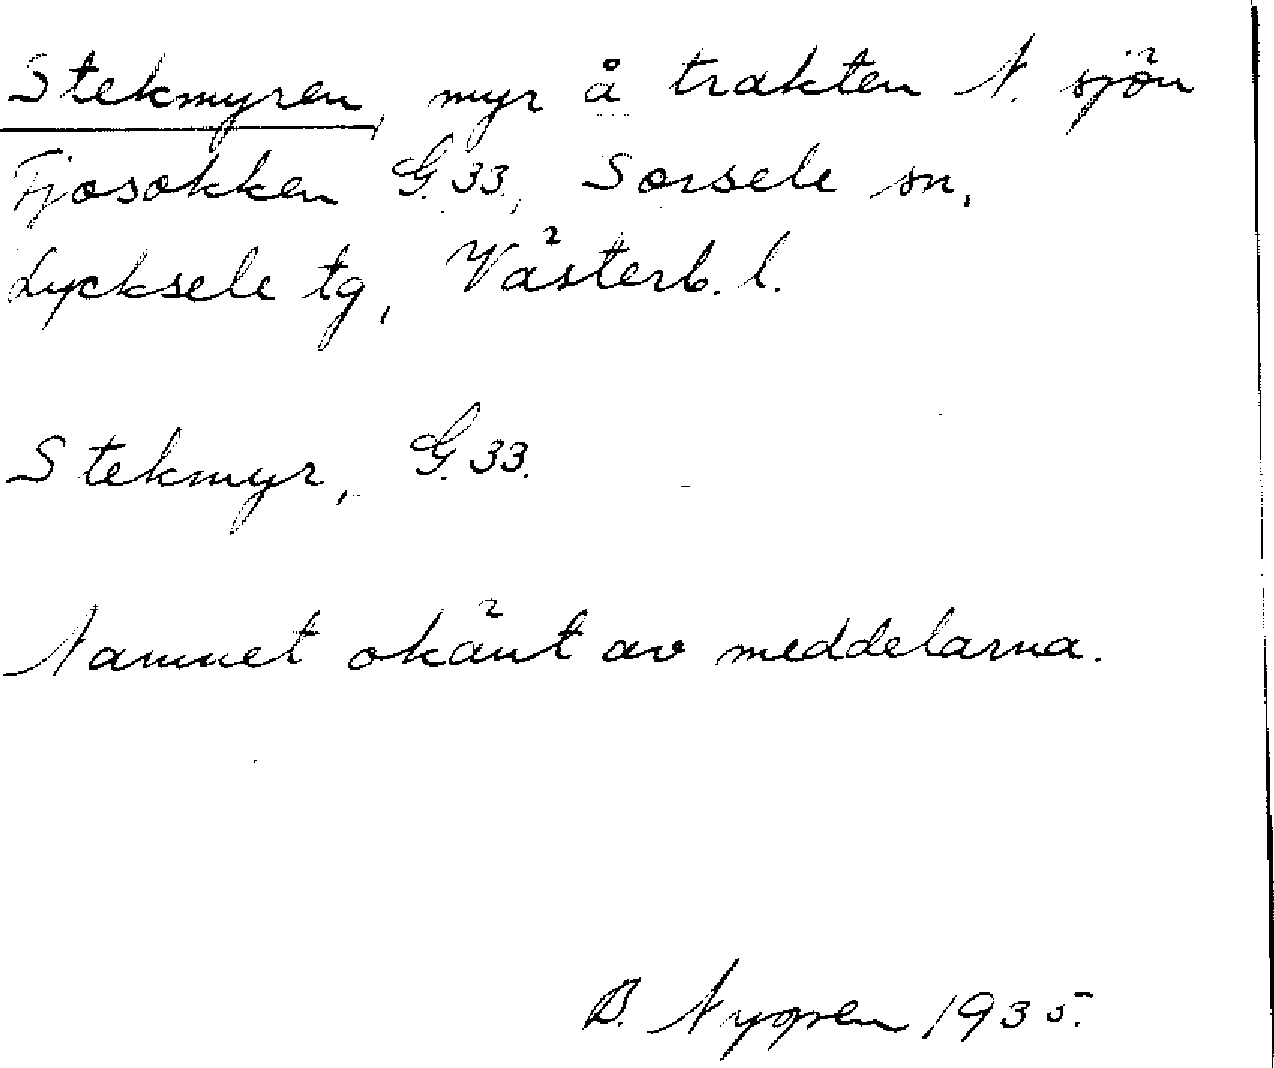 Stekmyren, myr å trakten N. sjön
Fjosokken G. 33., Sorsele sn,
Lycksele tg, Västerb. l.
Stekmyr, G. 33.
Namnet okänt av meddelarna.
B. Nygren 1935.